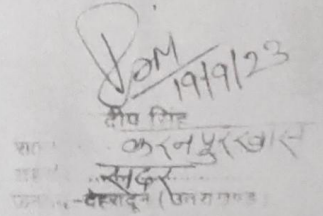 19/9/23
दीप सिंह
करनपुर खास
सदर
देहरादून (उत्तराखण्ड)